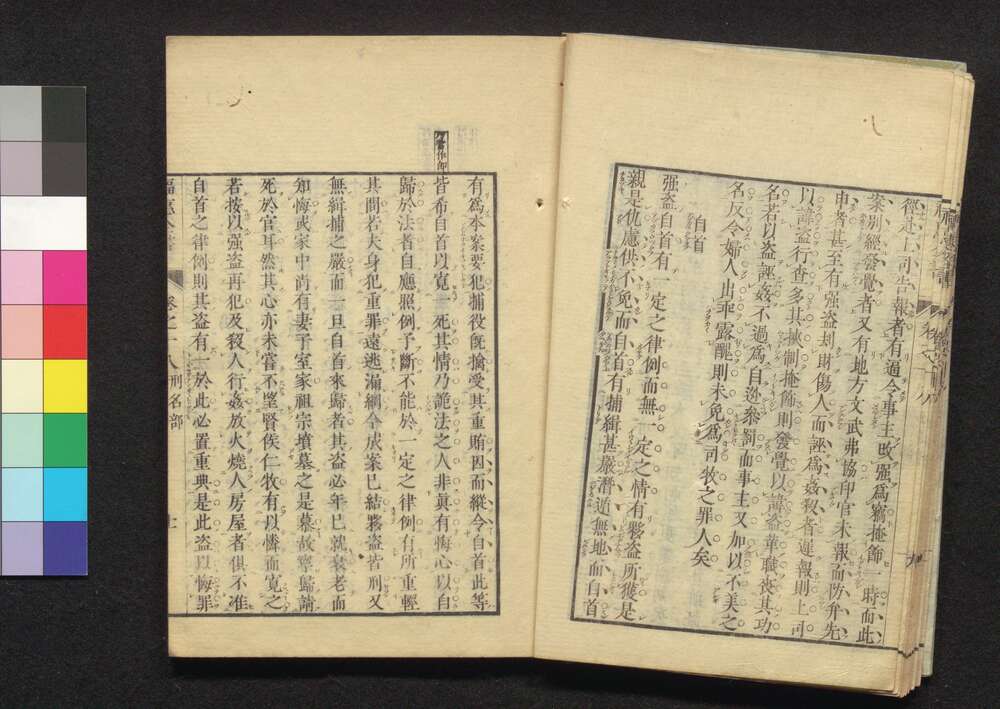 徑赴上司告報者有逼令事主改强爲竊掩飾一時而此
案別經發覺者又有地方文武弗協印官未報而防弁先
申者甚至有强盜刦財傷人而誣爲姦殺者違報則上司
以諱盜行查多其挾制掩飾則發覺以諱盜革職喪其功
名若以盜誣姦不過爲自逊叅罰而事主又加以不美之
名反令婦人出乖露醜則未免爲司牧之罪人矣
自首
强盜自首有一定之律例而無一定之情有夥盜所獲是
親是仇慮供不免而自首有捕緝甚嚴潛逝無地而自首
有爲本案要犯捕役旣擒受其重賄因而縱令自首此等
皆希自首以寬一死其情乃詭法之人非眞有悔心以自
歸於法者自應照例予斷不能於一定之律例有所重輕
其間若夫身犯重罪遠逃漏網今成案已結夥盜皆刑又
無緝捕之嚴而一旦自首來歸者其盜必年已就衰老而
知悔或家中尚有妻子室家祖宗墳墓之是慕故寧歸請
死於官耳然其心亦未嘗不望賢侯仁牧有以憐而寬之
若按以强盜再犯及殺人行姦放火燒人房屋者俱不准
自首之律例則其盜有一於此必置重典是此盜以悔罪
福惠全書 卷之十八 刑名部 十